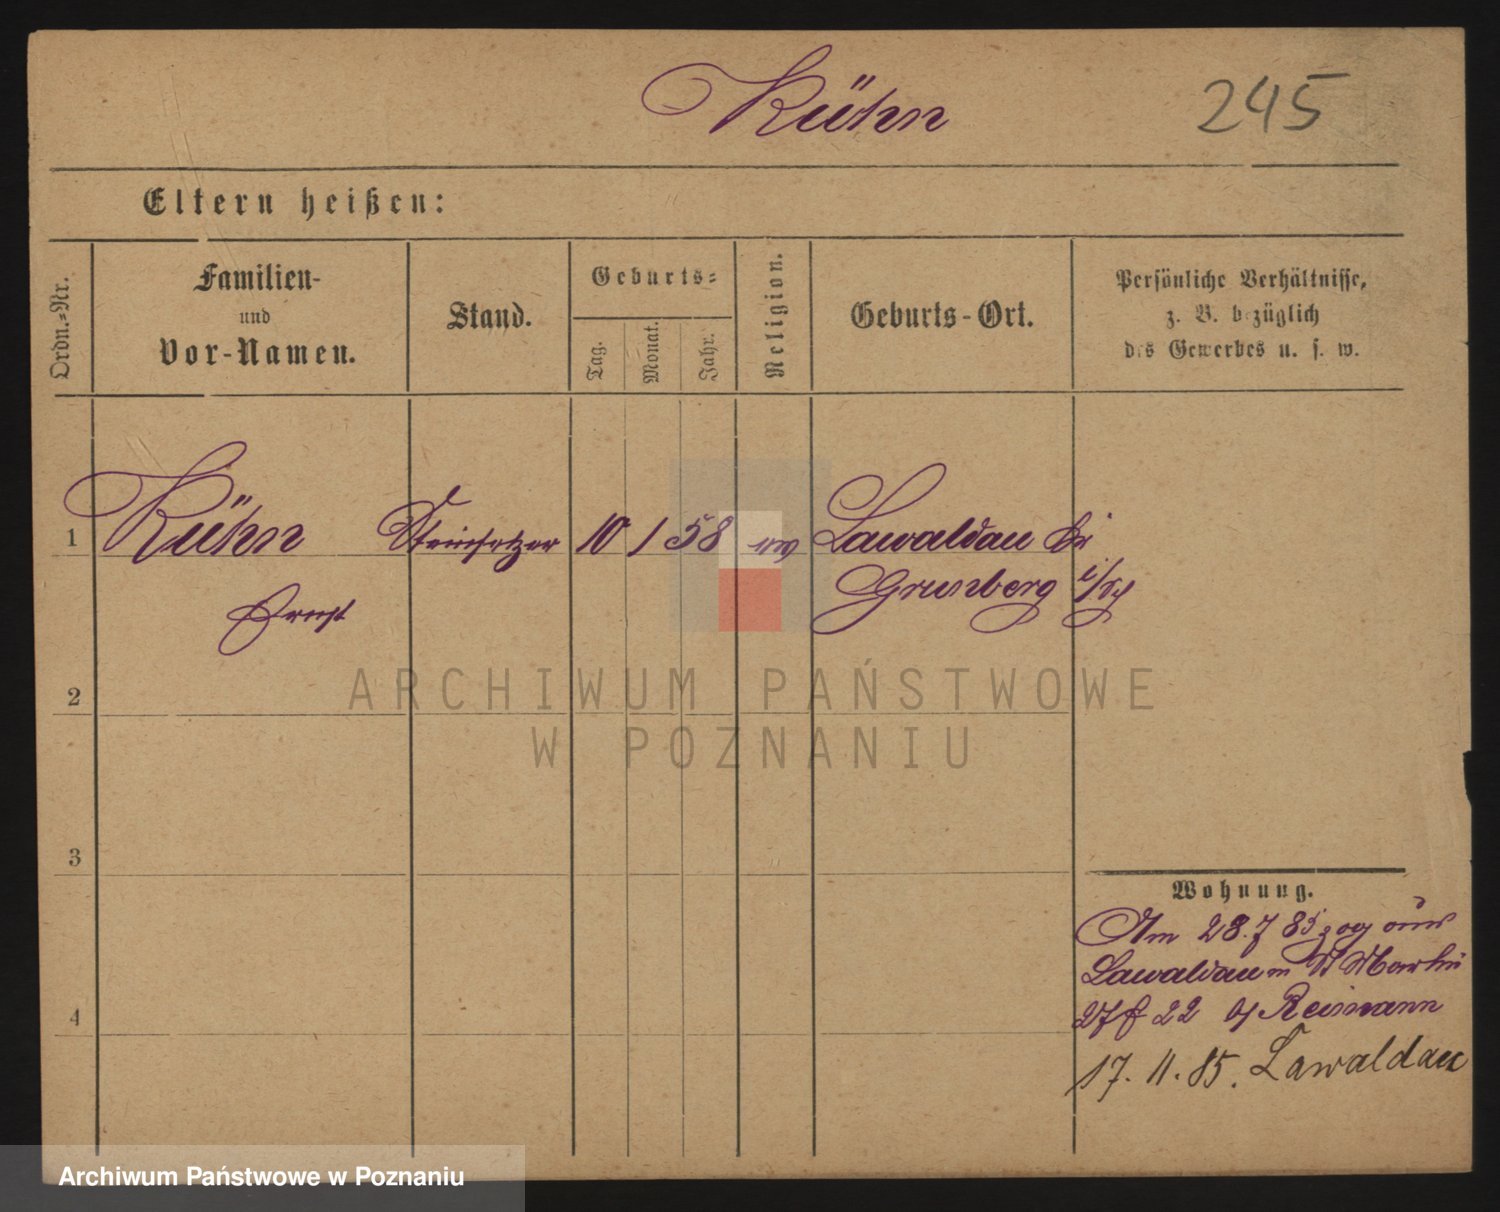 Kühn
245
Eltern heißen:
Ordn.-Nr.
Familien-
und
Vor-Namen.
Stand.
Geburts-
Tag.
Monat.
Jahr.
Religion.
Geburts-Ort.
Persönliche Verhältnisse,
z. B. bezüglich
des Gewerbes u. s. w.
1 Kühn Steinsetzer 10 1 58 ev Lawaldau Kr
Ernst Grunberg i/Sch
2
ARCHIWUM PAŃSTWOWE
W POZNANIU
3
Wohnung.
Am 28.7 85 zog aus
Lawaldau n St Martin
27 22 b/ Reimann
4
17. 11. 85. Lawaldau
Archiwum Państwowe w Poznaniu